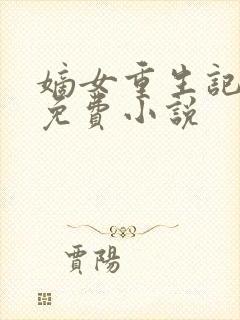 嫡女重生記
免費小説
賈陽